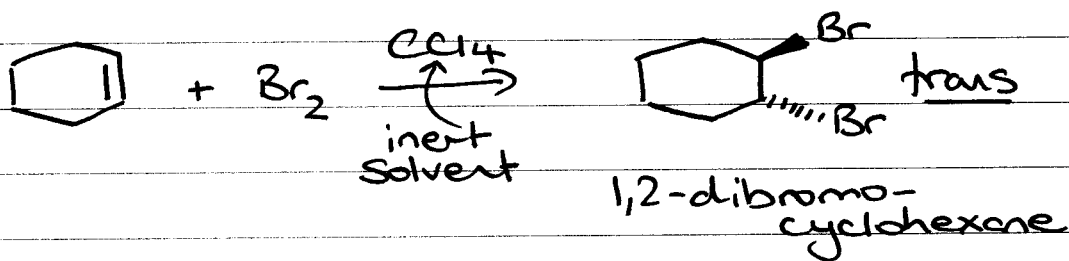 + Br₂ CCl4 Br
trans
Br
inert
solvent
1,2-dibromo-
cyclohexane